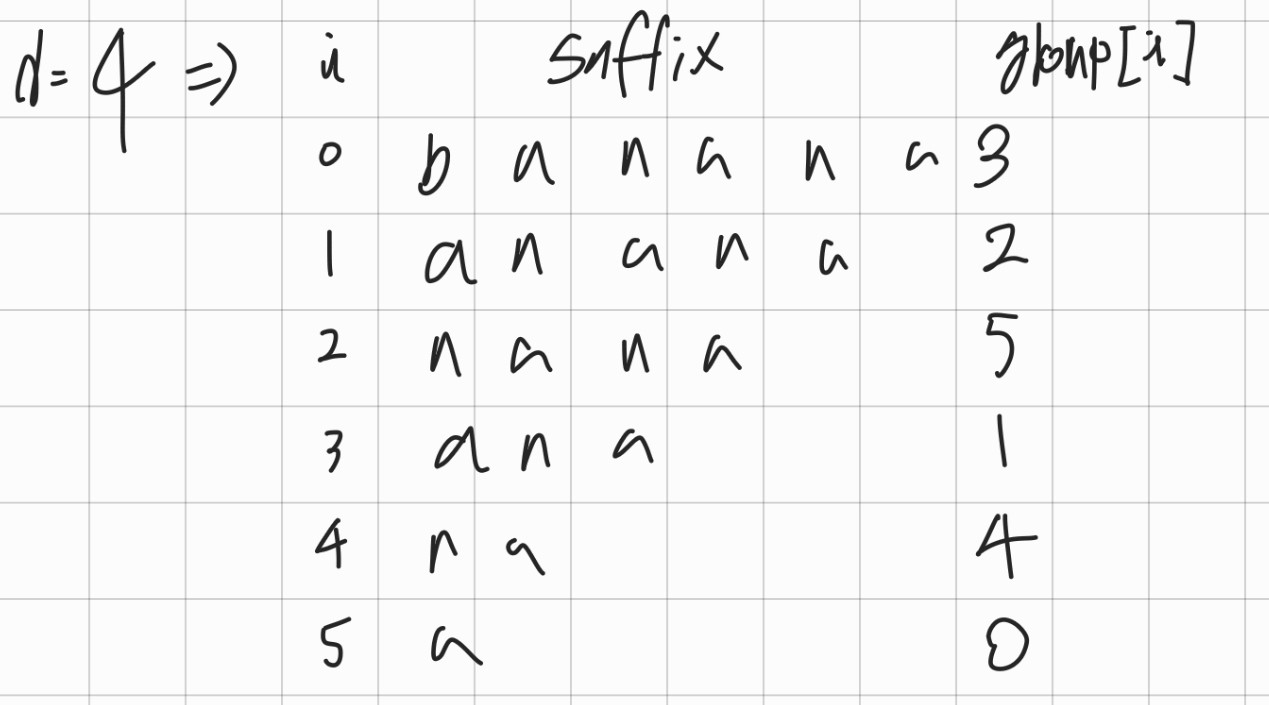 d=4 ⇒ i suffix group[i]
0 b a n a n a 3
1 a n a n a 2
2 n a n a 5
3 a n a 1
4 n a 4
5 a 0